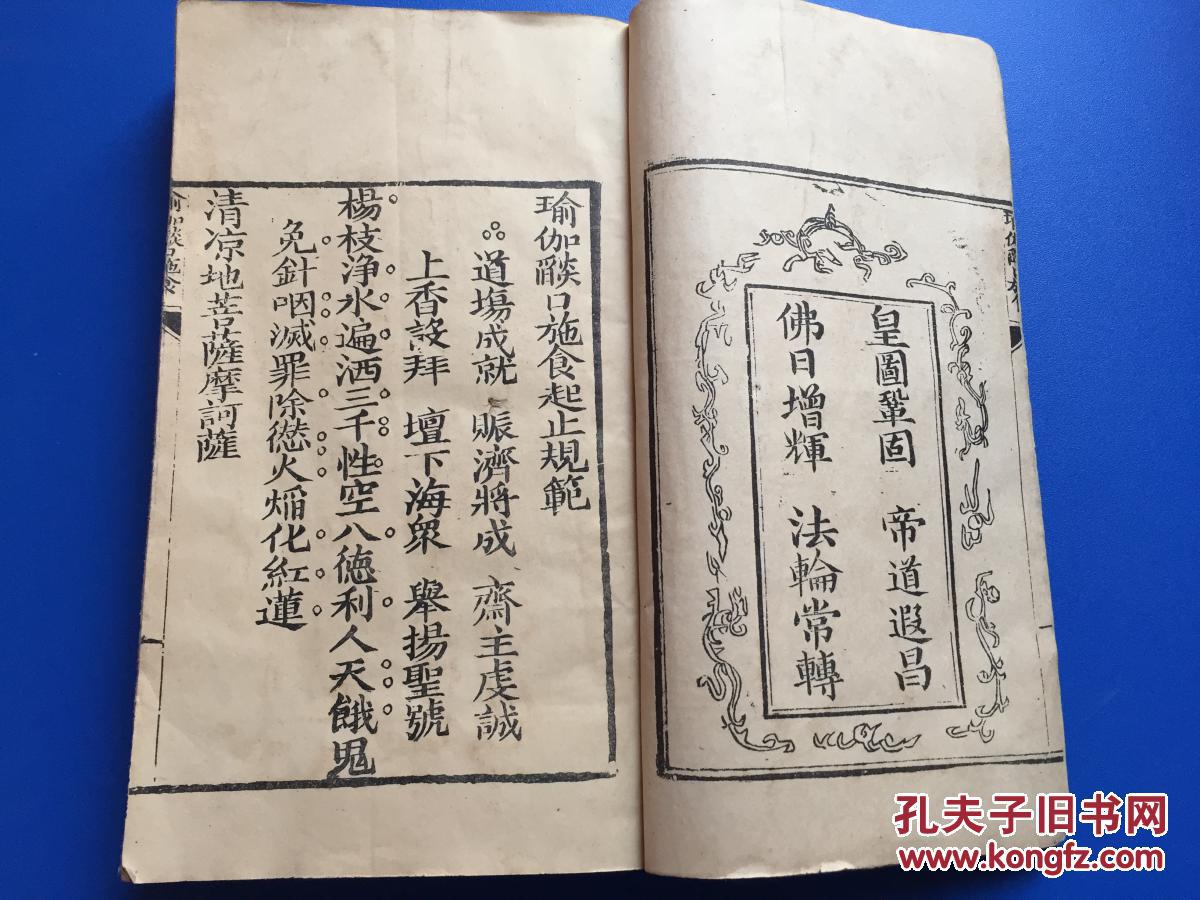 皇圖鞏固 帝道遐昌
佛日增輝 法輪常轉
瑜伽𦦨口施食起止規範
道塲成就 賑濟將成 齋主虔誠
上香設拜 壇下海衆 舉揚聖號
楊枝浄水遍洒三千性空八德利人天餓鬼
免針咽滅罪除愆火熖化紅蓮
清凉地菩薩摩訶薩
孔夫子旧书网
www.kongfz.com